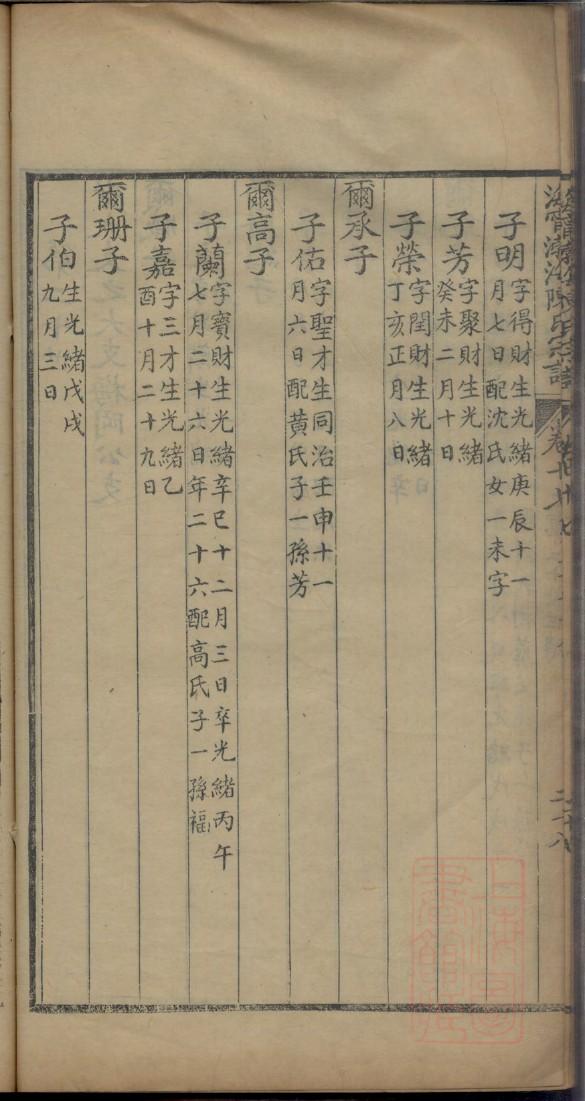 子明字得財生光緒庚辰十一
月七日配沈氏女一未字
子芳字聚財生光緒
癸未二月十日
子榮字閏財生光緒
丁亥正月八日
爾承子
子佑字聖才生同治壬申十一
月六日配黃氏子一孫芳
爾高子
子蘭字寶財生光緒辛巳十二月三日卒光緒丙午
七月二十六日年二十六配高氏子一孫福
子嘉字三才生光緒乙
酉十月二十九日
爾珊子
子伯生光緒戊戌
九月三日